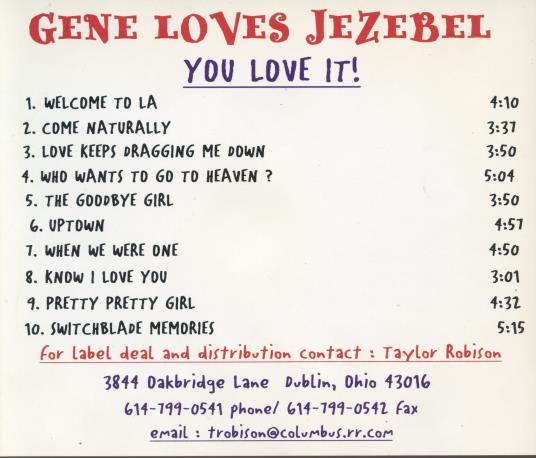 GENE LOVES JEZEBEL
YOU LOVE IT!
1. WELCOME TO LA 4:10
2. COME NATURALLY 3:37
3. LOVE KEEPS DRAGGING ME DOWN 3:50
4. WHO WANTS TO GO TO HEAVEN ? 5:04
5. THE GOODBYE GIRL 3:50
6. UPTOWN 4:57
7. WHEN WE WERE ONE 4:50
8. KNOW I LOVE YOU 3:01
9. PRETTY PRETTY GIRL 4:32
10. SWITCHBLADE MEMORIES 5:15
for label deal and distribution contact : Taylor Robison
3844 Oakbridge Lane Dublin, Ohio 43016
614-799-0541 phone/ 614-799-0542 fax
email : trobison@columbus.rr.com